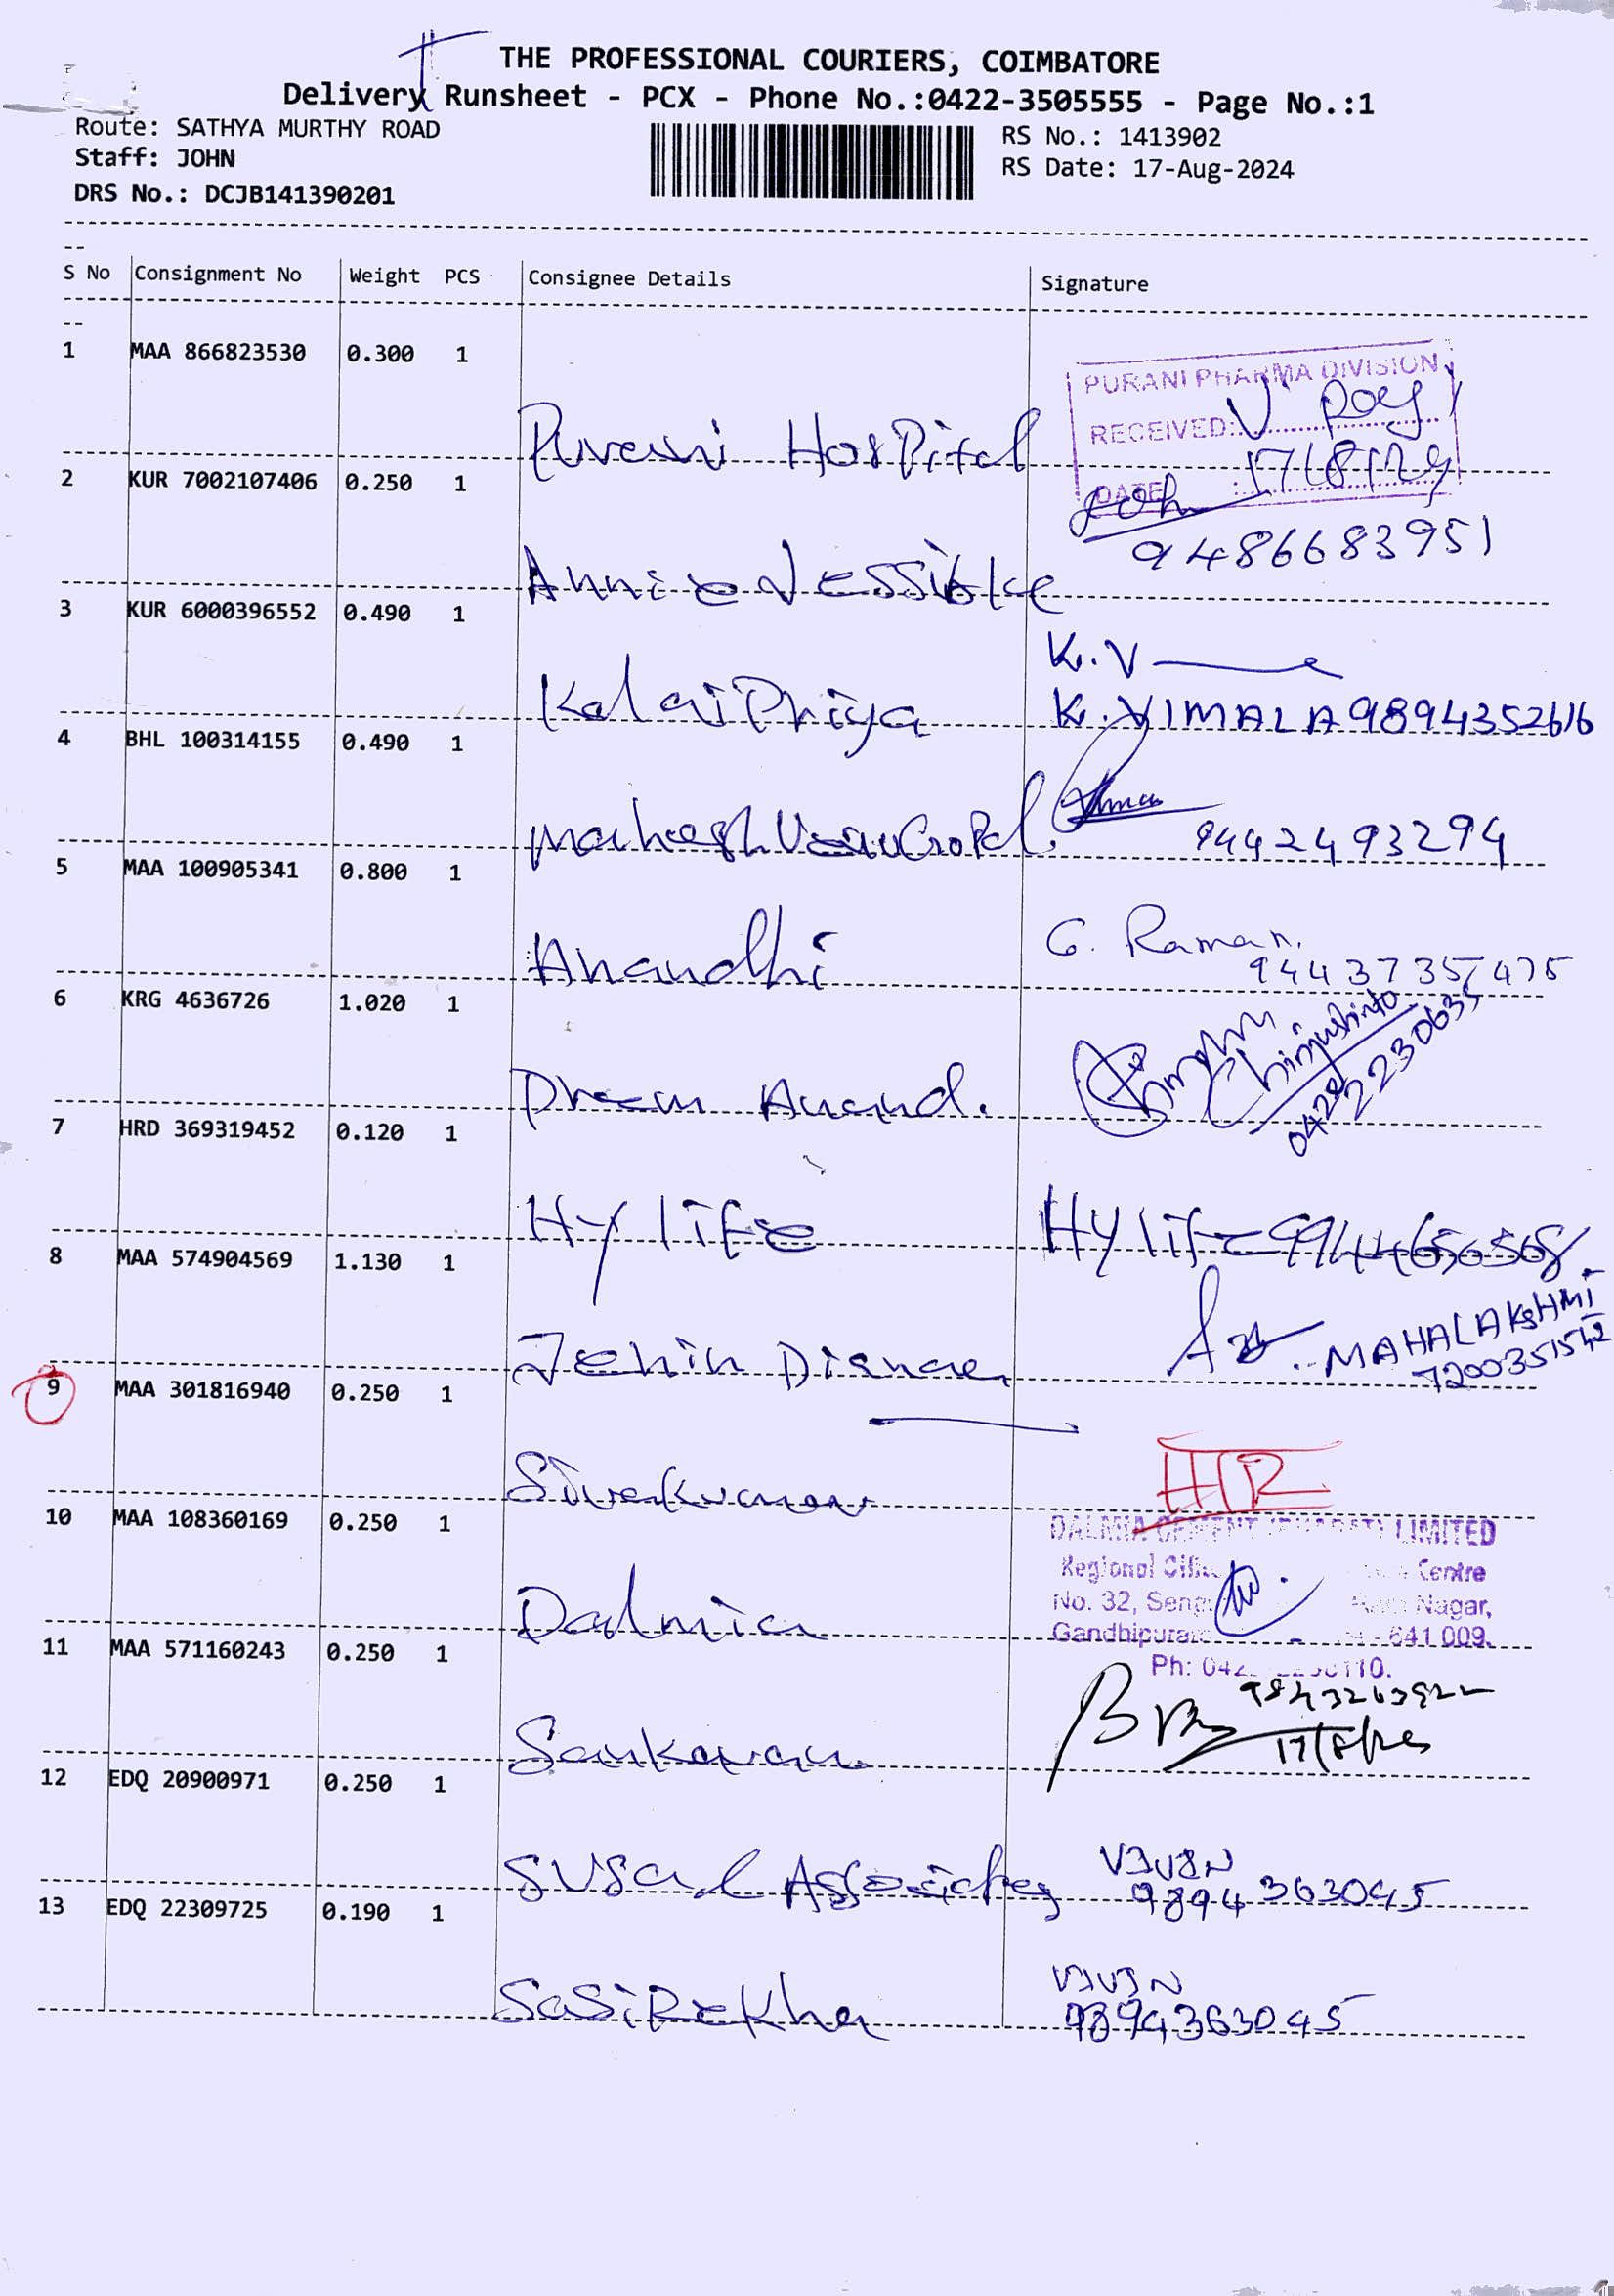 THE PROFESSIONAL COURIERS, COIMBATORE
Delivery Runsheet - PCX - Phone No.:0422-3505555 - Page No.:1
Route: SATHYA MURTHY ROAD
Staff: JOHN
DRS No.: DCJB141390201
RS No.: 1413902
RS Date: 17-Aug-2024
S No Consignment No Weight PCS Consignee Details Signature
1 MAA 866823530 0.300 1
PURANI PHARMA DIVISION
RECEIVED: V. Roy
Purani Hospital
DATE : 17/8/24
2 KUR 7002107406 0.250 1
9486683951
Annie
3 KUR 6000396552 0.490 1
K.V
KalaiPriya
K. VIMALA 9894352616
4 BHL 100314155 0.490 1
9442493294
5 MAA 100905341 0.800 1
Anandhi
G. Raman.
9443735475
6 KRG 4636726 1.020 1
Anand.
0422 2230635
7 HRD 369319452 0.120 1
Hy life
Hy life 9944656568
8 MAA 574904569 1.130 1
MAHALAKSHMI
7200351542
9 MAA 301816940 0.250 1
Sivakumar
10 MAA 108360169 0.250 1
DALMIA CEMENT (BHARAT) LIMITED
Regional Centre
No. 32, Nagar,
Gandhipuram 641 009.
Ph:
Dalmia
11 MAA 571160243 0.250 1
Sankaran
12 EDQ 20900971 0.250 1
Associates
9894363045
13 EDQ 22309725 0.190 1
SasiRekha
9894363045